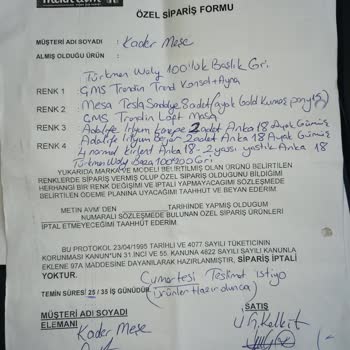 METİN AVM
ÖZEL SİPARİŞ FORMU
MÜŞTERİ ADI SOYADI : Kader Meşe
ALMIŞ OLDUĞU ÜRÜN :
Türkmen Waly 100'lük Başlık Gri
RENK 1 GMS Trendin Trend Konsol+Ayna
RENK 2 Mesa Tesla Sandalye 8 adet (ayak Gold Kumaş
GMS Trendin Loft Masa
RENK 3 2 adet Anka 18 Ayak Gümüş
RENK 4 2 adet Anka 18 Ayak Gümüş
4 normal kırlent Anka 18 - 2 yassı yastık Anka 18
Türkmen Waly Baza 100x200 Gri
YUKARIDA MARKA VE MODELİ BELİRTİLMİŞ OLAN ÜRÜNÜ BELİRTİLEN
RENKLERDE SİPARİŞ VERMİŞ OLUP ÖZEL SİPARİŞ OLDUĞUNU BİLDİĞİMİ
HERHANGİ BİR RENK DEĞİŞİMİ VE İPTALİ YAPMAYACAĞIMI SÖZLEŞMEDE
BELİRTİLEN ÖDEME PLANINA UYACAĞIMI TAAHHÜT VE BEYAN EDERİM
METİN AVM'DEN TARİHİNDE YAPMIŞ OLDUĞUM
NUMARALI SÖZLEŞMEDE BULUNAN ÖZEL SİPARİŞ ÜRÜNLERİ
İPTAL ETMEYECEĞİMİ TAAHHÜT EDERİM.
BU PROTOKOL 23/04/1995 TARİHLİ VE 4077 SAYILI TÜKETİCİNİN
KORUNMASI KANUN'UN 31.İNCİ VE 55. KANUNA 4822 SAYILI KANUNLA
EKLENE 97A MADDESİNE DAYANILARAK HAZIRLANMIŞTIR, SİPARİŞ İPTALİ
YOKTUR.
Cumartesi Teslimat istiyo
TEMİN SÜRESİ 25 / 35 İŞ GÜNÜDÜR. (ürünler Hazır olunca)
MÜŞTERİ ADI SOYADI SATIŞ
ELEMANI
Kader Meşe